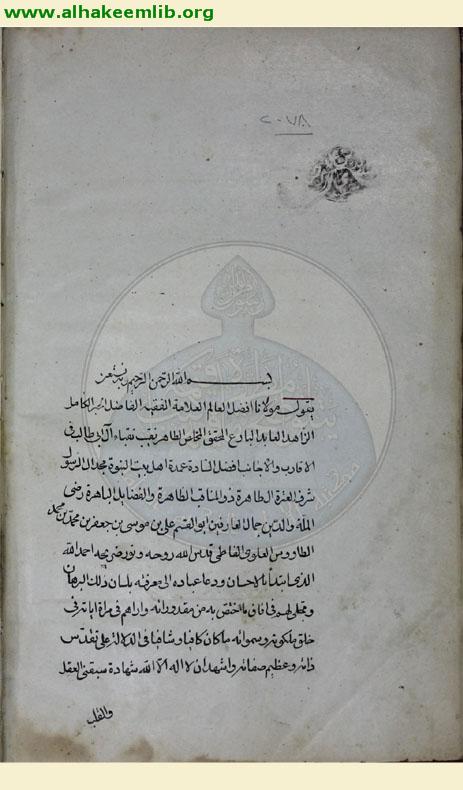 www.alhakeemlib.org
٢٠٧٨
بسم الله الرحمن الرحيم وبه نستعين
يقول مولانا افضل العالم العلامة الفقيه الفاضل الكامل
الزاهد العابد البارع المحقق المخلص الطاهر نقيب نقباء آل ابيطالب فى
الاقارب والاجانب افضل السادة عمدة اهل بيت النبوة مجد آل الرسول
شرف العترة الطاهرة ذو المناقب الظاهرة والفضايل الباهرة رضى
الملة والدين جمال العارفين ابو القسم على بن موسى بن جعفر بن محمد بن محمد
الطاووس العلوى الفاطمى قدس الله روحه ونور ضريحه احمد الله
الذى ابتدأ بالاحسان ودعا عباده الى معرفته بلسان ذلك البرهان
وتجلى لهم فى افاق ما اختص به من مقدوراته واراهم فى مراة اياته فى
خلق ملكوته وسمواته ما كان كافيا وشافيا فى الدلالة على تقدس
ذاته وعظيم صفاته واشهد ان لا اله الا الله شهادة سبقنى العقل
والقلب